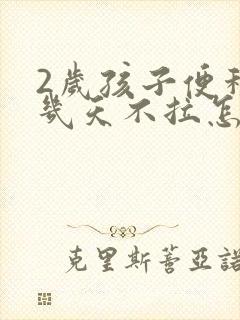 2歲孩子便秘
幾天不拉怎
克里斯蒂亞諾